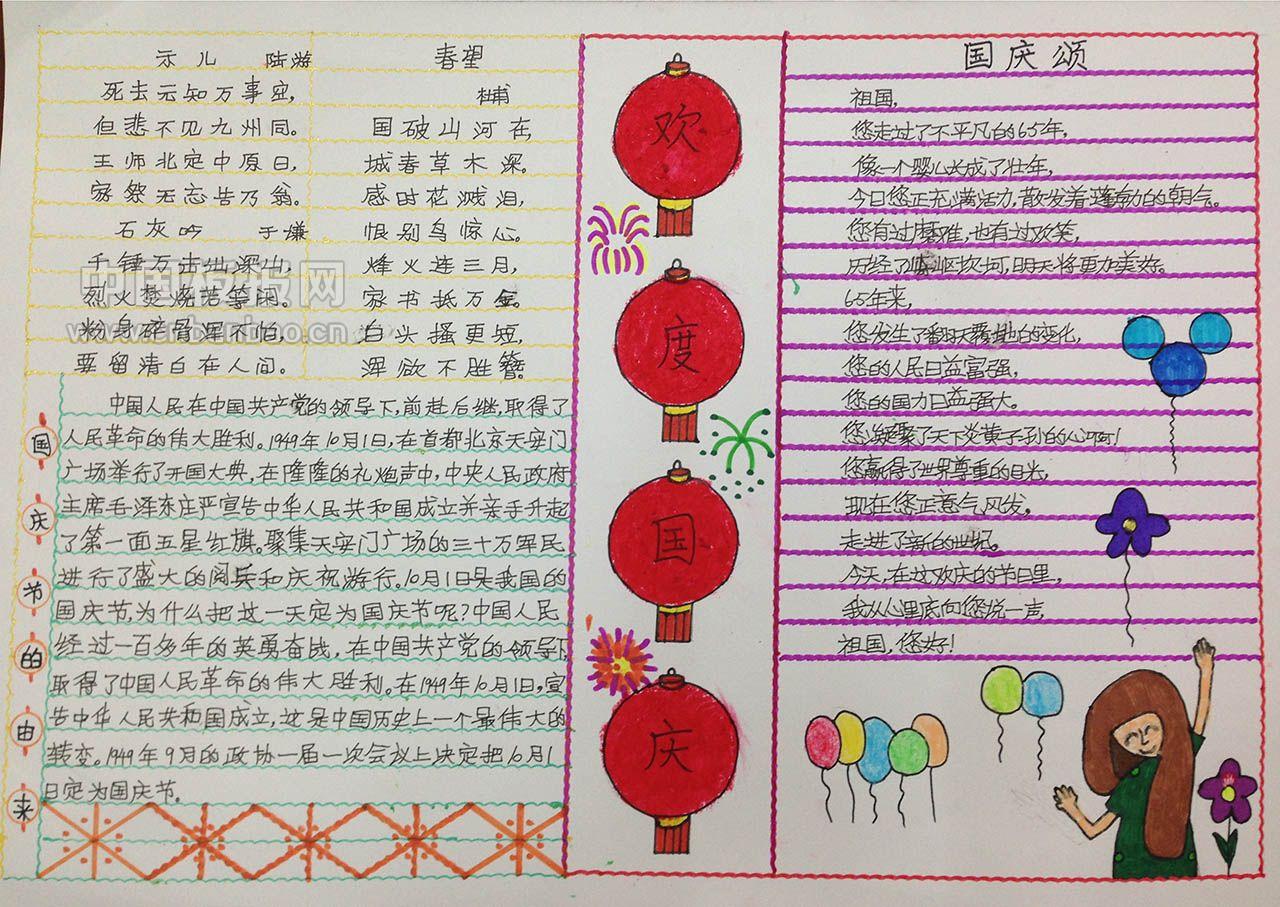 示儿 陆游
死去元知万事空,
但悲不见九州同。
王师北定中原日,
家祭无忘告乃翁。
石灰吟 于谦
千锤万击出深山,
烈火焚烧若等闲。
粉身碎骨浑不怕,
要留清白在人间。
春望
杜甫
国破山河在,
城春草木深。
感时花溅泪,
恨别鸟惊心。
烽火连三月,
家书抵万金。
白头搔更短,
浑欲不胜簪。
中国报网
www.banbao.cn
国庆节的由来
中国人民在中国共产党的领导下,前赴后继,取得了
人民革命的伟大胜利。1949年10月1日,在首都北京天安门
广场举行了开国大典,在隆隆的礼炮声中,中央人民政府
主席毛泽东庄严宣告中华人民共和国成立并亲手升起
了第一面五星红旗。聚集天安门广场的三十万军民
进行了盛大的阅兵和庆祝游行。10月1日是我国的
国庆节,为什么把这一天定为国庆节呢?中国人民
经过一百多年的英勇奋战,在中国共产党的领导下,
取得了中国人民革命的伟大胜利。在1949年10月1日,宣
告中华人民共和国成立,这是中国历史上一个最伟大的
转变。1949年9月的政协一届一次会议上决定把10月1
日定为国庆节。
欢
度
国
庆
国庆颂
祖国,
您走过了不平凡的65年,
像一个婴儿长成了壮年,
今日您正充满活力,散发着蓬勃的朝气。
您有过磨难,也有过欢笑,
历经了坎坷,明天将更加美好。
65年来,
您发生了翻天覆地的变化,
您的人民日益富强,
您的国力日益强大。
您凝聚了天下炎黄子孙的心啊!
您赢得了世界尊重的目光,
现在您正意气风发,
走进了新的世纪。
今天,在这欢庆的节日里,
我从心里底向您说一声,
祖国,您好!